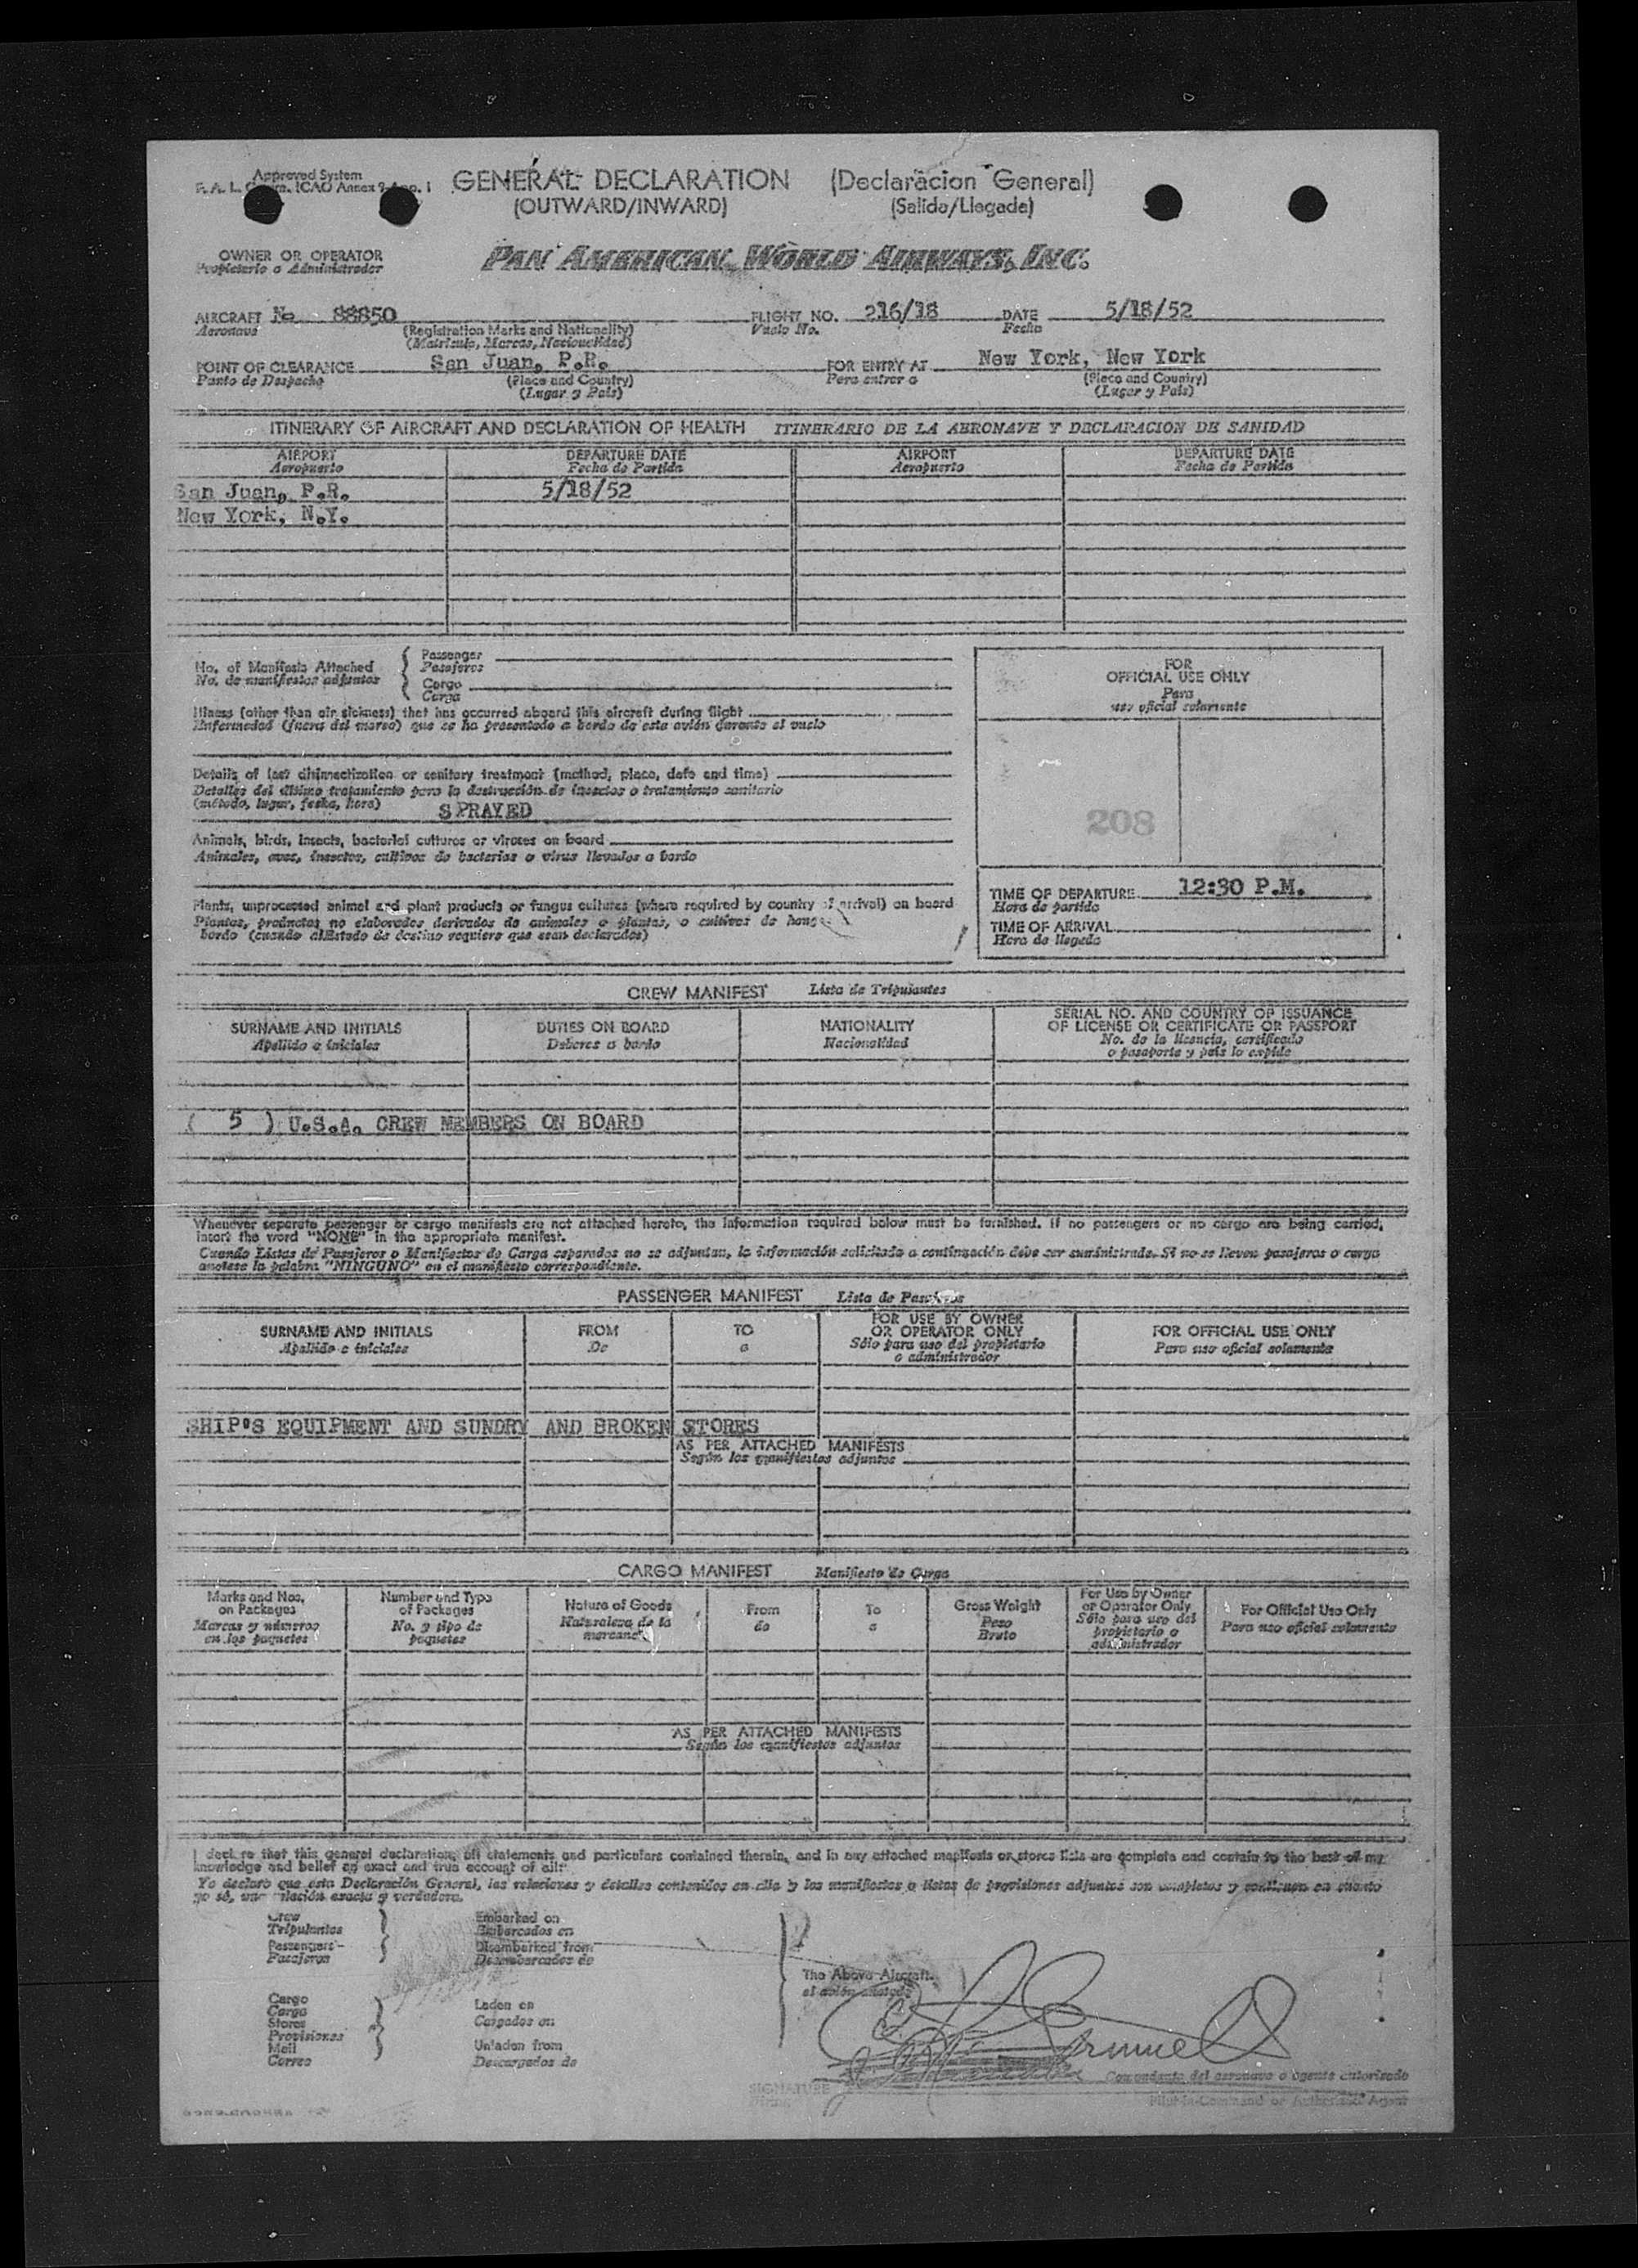 Approved System
F. A. L. ICAO Annex 9 App. 1
GENERAL DECLARATION (Declaracion General)
(OUTWARD/INWARD) (Salida/Llegada)
OWNER OR OPERATOR PAN AMERICAN WORLD AIRWAYS, INC.
Propietario o Administrador
AIRCRAFT No 88850 FLIGHT NO. 216/18 DATE 5/18/52
Aeronave (Registration Marks and Nationality) Vuelo No. Fecha
(Matricula, Marcas, Nacionalidad)
POINT OF CLEARANCE San Juan, P.R. FOR ENTRY AT New York, New York
Punto de Despacho (Place and Country) Para entrar a (Place and Country)
(Lugar y Pais) (Lugar y Pais)
ITINERARY OF AIRCRAFT AND DECLARATION OF HEALTH ITINERARIO DE LA AERONAVE Y DECLARACION DE SANIDAD
AIRPORT DEPARTURE DATE AIRPORT DEPARTURE DATE
Aeropuerto Fecha de Partida Aeropuerto Fecha de Partida
San Juan, P.R. 5/18/52
New York, N.Y.
No. of Manifests Attached
No. de manifiestos adjuntos
Passenger
Pasajeros
Cargo
Carga
FOR
OFFICIAL USE ONLY
Para
uso oficial solamente
Illness (other than air sickness) that has occurred aboard this aircraft during flight
Enfermedad (fuera del mareo) que se ha presentado a bordo de este avión durante el vuelo
Details of last disinsectization or sanitary treatment (method, place, date and time)
Detalles del último tratamiento para la destrucción de insectos o tratamiento sanitario
(método, lugar, fecha, hora) SPRAYED
208
Animals, birds, insects, bacterial cultures or viruses on board
Animales, aves, insectos, cultivos de bacterias o virus llevados a bordo
TIME OF DEPARTURE 12:30 P.M.
Hora de partida
TIME OF ARRIVAL
Hora de llegada
Plants, unprocessed animal and plant products or fungus cultures (where required by country of arrival) on board
Plantas, productos no elaborados derivados de animales o plantas, o cultivos de hong
bordo (cuando al Estado de destino requiere que sean declarados)
CREW MANIFEST Lista de Tripulantes
SURNAME AND INITIALS DUTIES ON BOARD NATIONALITY SERIAL NO. AND COUNTRY OF ISSUANCE
OF LICENSE OR CERTIFICATE OR PASSPORT
Apellido e iniciales Deberes a bordo Nacionalidad No. de la licencia, certificado
o pasaporte y país lo expide
( 5 ) U.S.A. CREW MEMBERS ON BOARD
Whenever separate passenger or cargo manifests are not attached hereto, the information required below must be furnished. If no passengers or no cargo are being carried,
insert the word "NONE" in the appropriate manifest.
Cuando Listas de Pasajeros o Manifiestos de Carga separados no se adjuntan, la información solicitada a continuación debe ser suministrada. Si no se lleven pasajeros o carga
anotese la palabra "NINGUNO" en el manifiesto correspondiente.
PASSENGER MANIFEST Lista de Pasajeros
SURNAME AND INITIALS FROM TO FOR USE BY OWNER
OR OPERATOR ONLY FOR OFFICIAL USE ONLY
Apellido e iniciales De a Sólo para uso del propietario
o administrador Para uso oficial solamente
SHIP'S EQUIPMENT AND SUNDRY AND BROKEN STORES
AS PER ATTACHED MANIFESTS
Según los manifiestos adjuntos
CARGO MANIFEST Manifiesto de Carga
Marks and Nos.
on Packages
Marcas y números
en los paquetes
Number and Type
of Packages
No. y tipo de
paquetes
Nature of Goods
Naturaleza de la
mercancia
From
de
To
a
Gross Weight
Peso
Bruto
For Use by Owner
or Operator Only
Sólo para uso del
propietario o
administrador
For Official Use Only
Para uso oficial solamente
AS PER ATTACHED MANIFESTS
Según los manifiestos adjuntos
I declare that this general declaration, all statements and particulars contained therein, and in any attached manifests or stores lists are complete and contain to the best of my
knowledge and belief an exact and true account of all:
Yo declaro que esta Declaración General, las relaciones y detalles contenidos en ella y los manifiestos o listas de provisiones adjuntos son completos y contienen en cuanto
yo sé, una relación exacta y verdadera.
Crew
Tripulantes
Passengers
Pasajeros
Embarked on
Embarcados en
Disembarked from
Desembarcados de
The Above Aircraft
el avión anotado
Cargo
Carga
Stores
Provisiones
Mail
Correo
Laden on
Cargados en
Unladen from
Descargados de
SIGNATURE
Comandante del aeronave o agente autorizado
Pilot-in-Command or Authorized Agent